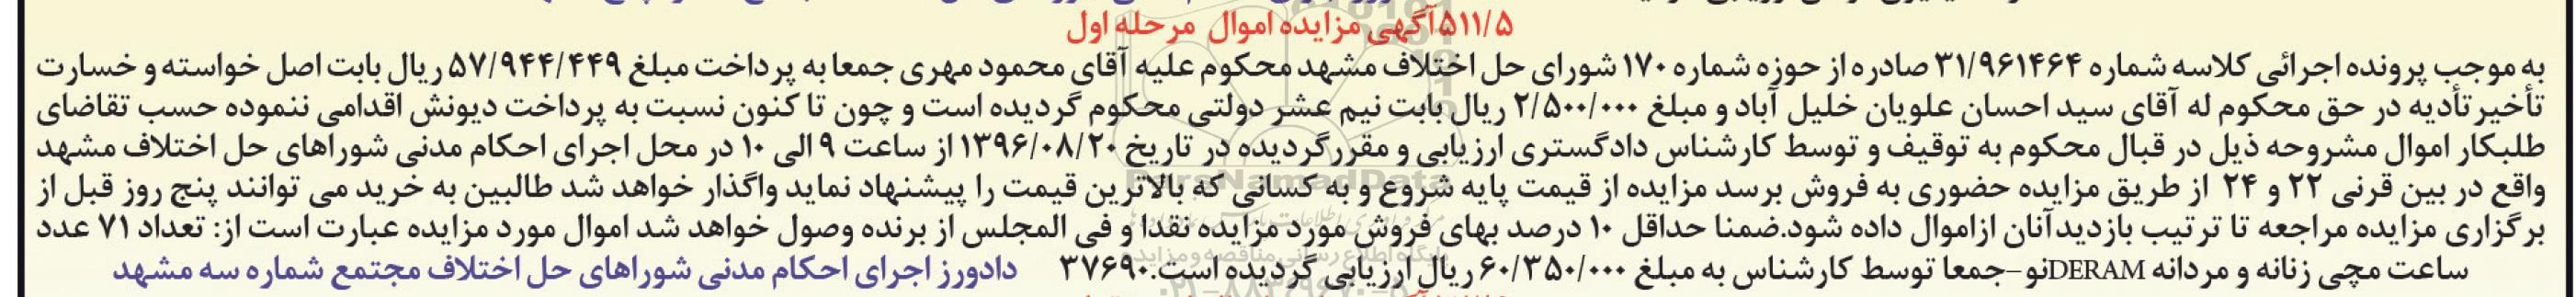 ۵۱۱/۵آگهی مزایده اموال مرحله اول
به موجب پرونده اجرائی کلاسه شماره ۳۱/۹۶۱۴۶۴ صادره از حوزه شماره ۱۷۰ شورای حل اختلاف مشهد محکوم علیه آقای محمود مهری جمعا به پرداخت مبلغ ۵۷/۹۴۴/۴۴۹ ریال بابت اصل خواسته و خسارت
تأخیر تأدیه در حق محکوم له آقای سید احسان علویان خلیل آباد و مبلغ ۲/۵۰۰/۰۰۰ ریال بابت نیم عشر دولتی محکوم گردیده است و چون تا کنون نسبت به پرداخت دیونش اقدامی ننموده حسب تقاضای
طلبکار اموال مشروحه ذیل در قبال محکوم به توقیف و توسط کارشناس دادگستری ارزیابی و مقررگردیده در تاریخ ۱۳۹۶/۰۸/۲۰ از ساعت ۹ الی ۱۰ در محل اجرای احکام مدنی شوراهای حل اختلاف مشهد
واقع در بین قرنی ۲۲ و ۲۴ از طریق مزایده حضوری به فروش برسد مزایده از قیمت پایه شروع و به کسانی که بالاترین قیمت را پیشنهاد نماید واگذار خواهد شد طالبین به خرید می توانند پنج روز قبل از
برگزاری مزایده مراجعه تا ترتیب بازدیدآنان ازاموال داده شود.ضمنا حداقل ۱۰ درصد بهای فروش مورد مزایده نقدا و فی المجلس از برنده وصول خواهد شد اموال مورد مزایده عبارت است از: تعداد ۷۱ عدد
ساعت مچی زنانه و مردانه DERAMنو -جمعا توسط کارشناس به مبلغ ۶۰/۳۵۰/۰۰۰ ریال ارزیابی گردیده است.۳۷۶۹۰ دادورز اجرای احکام مدنی شوراهای حل اختلاف مجتمع شماره سه مشهد
ParsNamadData
پایگاه اطلاع رسانی مناقصه و مزایده